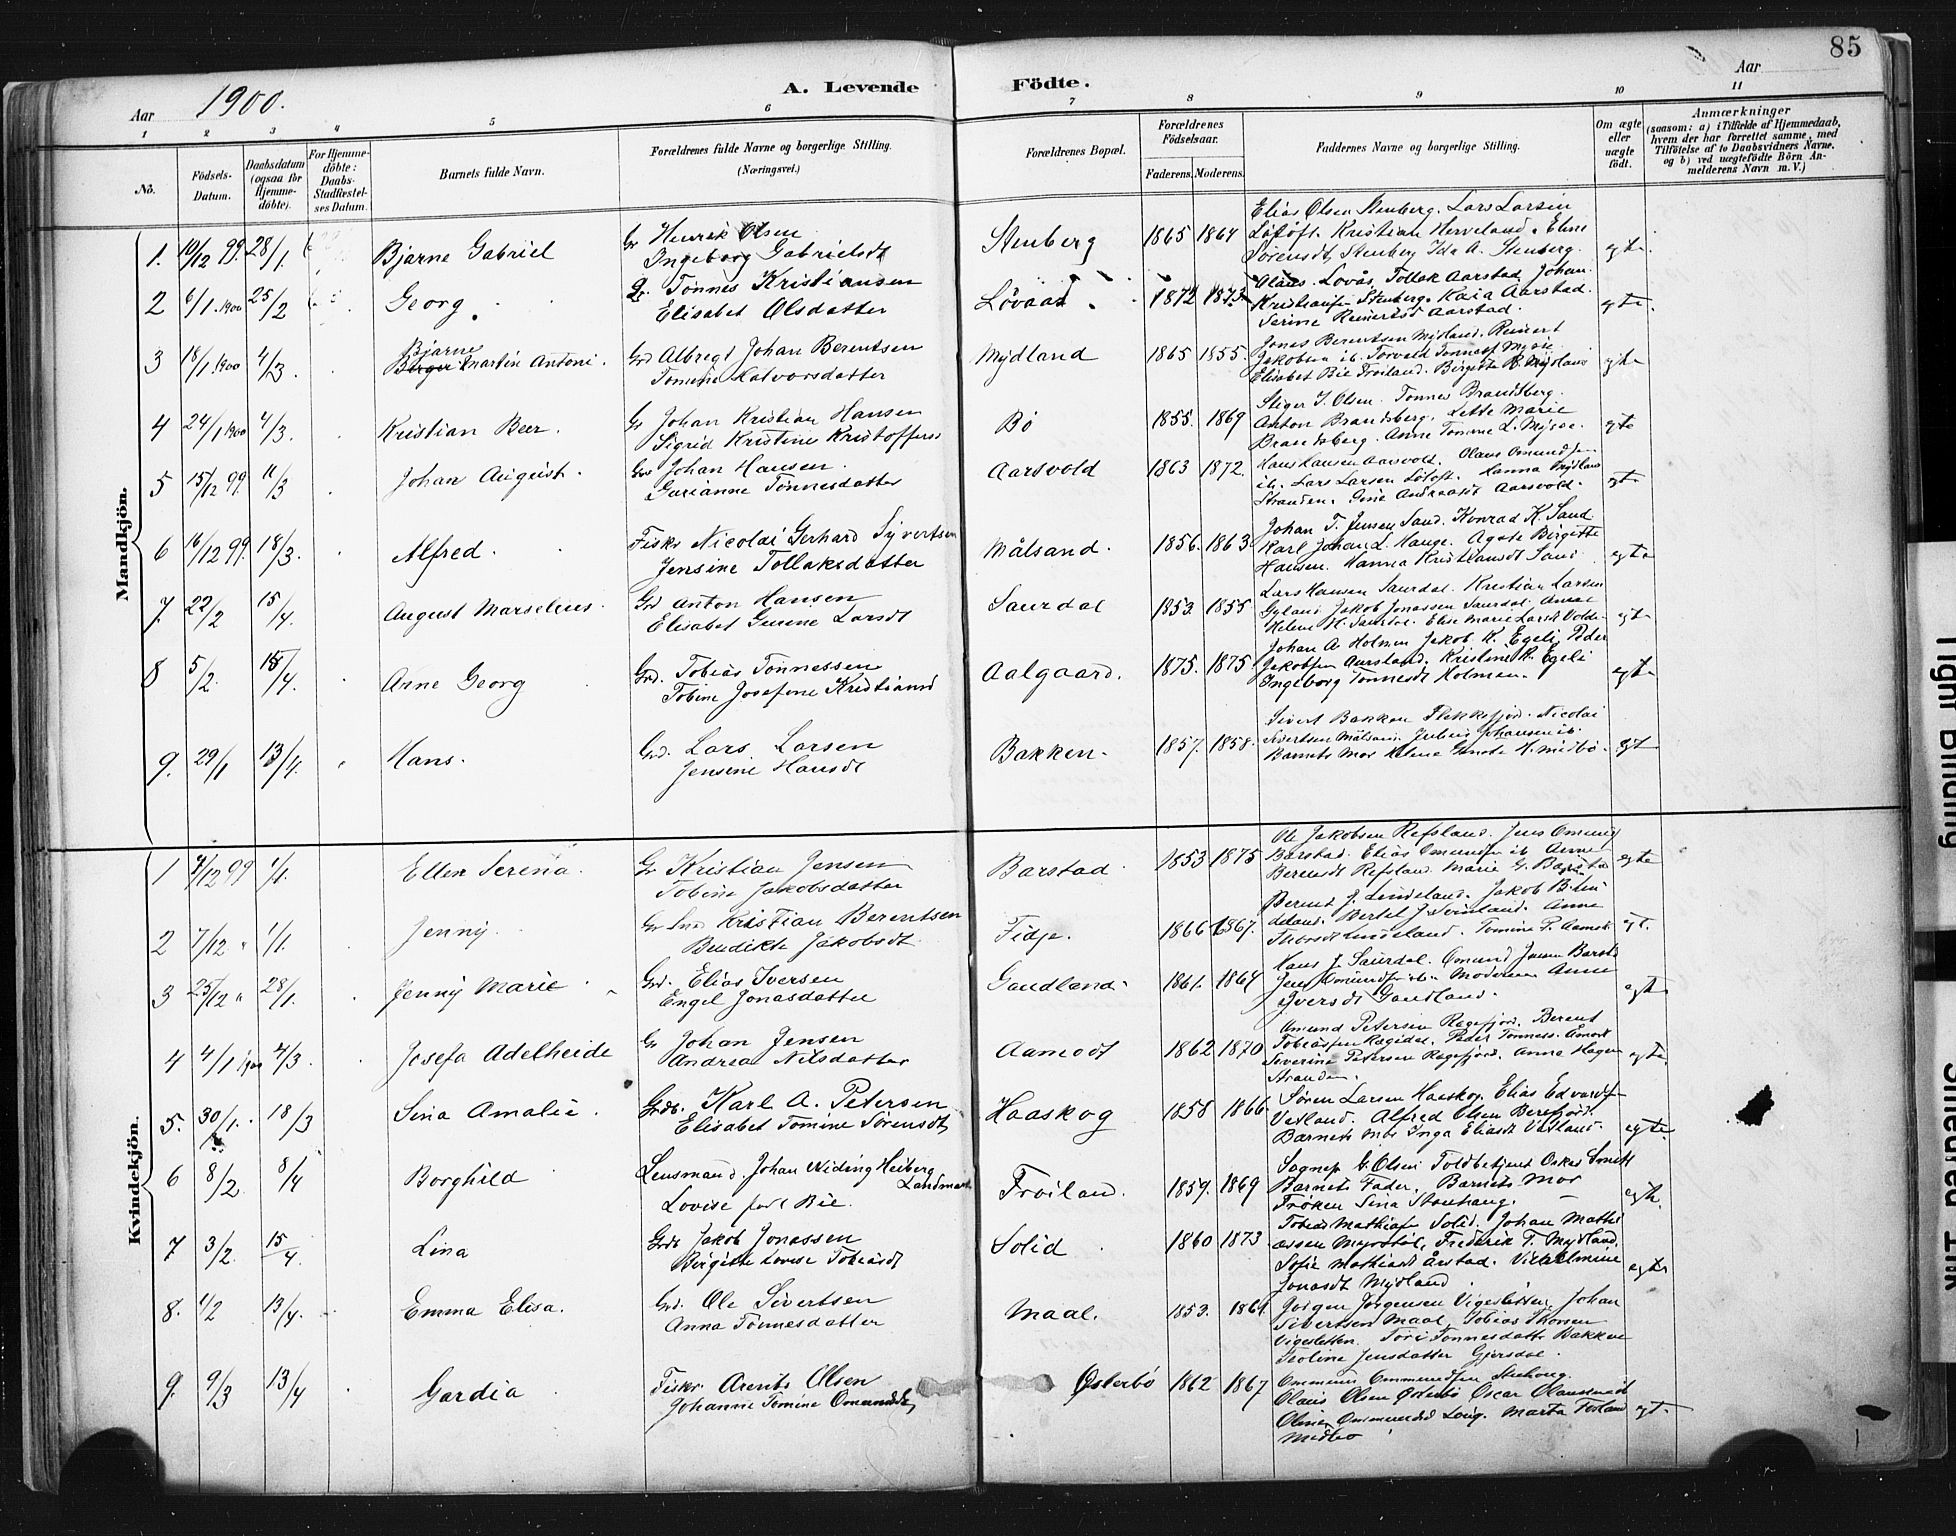 85
Aar 1900.
A. Levende Födte.
Aar
1 2 3 4 5 6 7 8 9 10 11
No.
Födsels-Datum.
Daabsdatum (ogsaa for Hjemme-döbte).
For Hjemme-döbte: Daabs-Stadfæstel-ses Datum.
Barnets fulde Navn.
Forældrenes fulde Navne og borgerlige Stilling.
(Næringsvei.)
Forældrenes Bopæl.
Forældrenes Födselsaar.
Faderens. Moderens.
Faddernes Navne og borgerlige Stilling.
Om ægte eller uægte födt.
Anmærkninger
(saasom: a) i Tilfælde af Hjemmedaab, hvem der har forrettet samme, med Tilföielse af to Daabsvidners Navne. og b) ved uægtefödte Börn An-melderens Navn m. V.)
Mandkjön.
1. 10/12 99. 28/1. Bjarne Gabriel
Gr Henrik Olsen
Ingeborg Gabrielsdt
Stenberg 1865 1864
Elias Olsen Stenberg. Lars Larsen
Löfloft. Kristian Herveland. Eline
Sørensdt. Stenberg Ida A. Stenberg.
egte.
2 6/1.1900 25/2 Georg.
Tønnes Kristiansen
Elisabet Olsdatter
Løvaas 1872 1873
Olaus Lovås, Tollak Aarstad, Johan
Kristiansen Stenberg. Kaia Aarstad.
Serine Reinertsd Aarstad.
egte.
3 18/1.1900 4/3 Bjarne Martin Antoni.
Grd Albregt Johan Berentsen
Tomine Halvorsdatter
Mydland 1865 1855.
Jonas Berentsen Mydland. Reinert
Jakobsen ib. Torvald Tønnes
Elisabet Bie Froiland. Birgitte B. Mydland
egte
4 24/1 1900 4/3. Kristian Beer.
Gr Johan Kristian Hansen
Sigrid Kristine Kristoffersd
Bö 1855. 1869
Stiger J. Olsen. Tønnes Brandsberg.
Anton Brandsberg. Lette Marie
Brandsberg. Anne Tomine L. Mysse.
egte
5 15/12 99. 11/3 Johan August.
Johan Hansen.
Gurianne Tønnesdatter
Aarsvold 1863 1872.
Hans Hansen Aarsvold. Olaus Omundsen
ib. Lars Larsen Löfloft. Hanna Mydland
Stranden. Gine Andreasdt Aarsvold.
egte
6 16/12 99. 18/3. Alfred.
Fisker Nicolai Gerhard Syvertsen
Jensine Tollaksdatter
Målsand. 1856. 1863.
Johan T. Jensen Sand. Konrad K. Sand
Karl Johan L. Hauge. Agate Birgitte
Hansen. Hanna Kristiansdt Sand
egte
7. 22/2 15/4. August Marselius.
Grd Anton Hansen
Elisabet Gurine Larsdt
Saurdal 1853. 1855
Lars Hansen Saurdal. Kristian Larsen
Gyland Jakob Jonassen Saurdal, Anne
Helene H. Saurdal. Elise Marie Larsdt Volde
egte
8 5/2. 15/4. Arne Georg
Grd. Tobias Tønnessen
Tobine Josefine Kristiansd
Aalgaard. 1875. 1875.
Johan A. Holmen Jakob. K. Egeli, Peder
Jakobsen Aarstad. Kristine K. Egeli
Ingeborg Tønnesdt Holmen.
egte
9. 29/1 13/4. Hans.
Grd. Lars Larsen
Jensine Hansdt
Bakken. 1857. 1858.
Sivert Bakken Flekkefjord. Nicolai
Sivertsen Målsand. Julius Johansen ib.
Barnets Mor Helene Hansdt H. Midbö.
egt
Kvindekjön.
1 4/12 99 1/1. Ellen Serena.
Gr Kristian Jensen
Tobine Jakobsdatter
Barstad. 1853 1875
Ole Jakobsen Refsland. Jens Omunds
Barstad. Elias Omundsen ib Anne
Berensdt Refsland. Marie G. Barstad
egte
2 7/12 " 1/1. Jenny.
Kristian Berentsen
Bendikte Jakobsdt
Fidje. 1866 1867.
Berent J. Lindeland. Jakob B. Lin
deland. Bertel J. Svinland. Anne
Lindeland. Tomine P. Aamodt
egt.
3 25/12 " 28/1. Jenny Marie
Grd. Elias Iversen
Engel Jonasdatter
Gandland. 1861. 1864
Hans J. Saurdal. Omund Jensen Barstad
Jens Omundsen ib. Moderen Anne
Iversdt Gandland.
egte
4 4/1 1900 4/3. Josefa Adelheide
Gr Johan Jensen
Andrea Nilsdatter
Aamodt 1862 1870
Omund Petersen Ragefjord. Berent
Tobiassen Ragidal. Peder Tønness. Åmodt
Severine Petersen Ragefjord. Anna Hagen
Stranden.
egte
5. 30/1. 18/3 Sina Amalie.
Grdb. Karl A. Petersen
Elisabet Tomine Sørensdt
Haaskog 1858 1866.
Søren Larsen Haaskog. Elias Edvardsen
Vetland. Alfred Olsen Berefjord.
Barnets Mor Inga Eliasdt Vetland.
egte.
6 8/2 8/4 Borghild
Lensmand. Johan Widing Heiberg
Landmark
Lovise født Bie.
Froiland. 1859. 1869
Sognep G. Olsen Toldbetjent Oskar Smith
Barnets Fader. Barnets Mor
Frøken Sina Stenhaug.
egte.
7 3/2. 15/4. Lina
Grdb Jakob Jonassen
Birgitte Lovise Tobiasdt
Solid 1860 1873
Tobias Mathias Solid. Johan Mathi
assen Myrstöl, Frederik T. Mydland.
Sofie Mathiasdt Årstad. Vilhelmine
Jonasdt Mydland
egte
8. 1/2 13/4. Emma Elisa.
Grd. Ole Sivertsen
Anna Tønnesdatter
Maal. 1853. 1861
Jørgen Jørgensen Vigesletten, Johan
Sivertsen Maal, Tobias Thorsen
Vigesletten. Tori Tønnesdatter Bakken
Teoline Jensdatter Gjersdal.
9. 9/3 13/4 Gardia
Fisker Arents Olsen
Johanne Tomine Omundsdt
Østerbö 1862 1867
Ommund Ommundsen Stenberg.
Olaus Olsen Østerbö Oscar Olausen
Oline Ommundsd Log. Marta Torland
Midbö
egt.